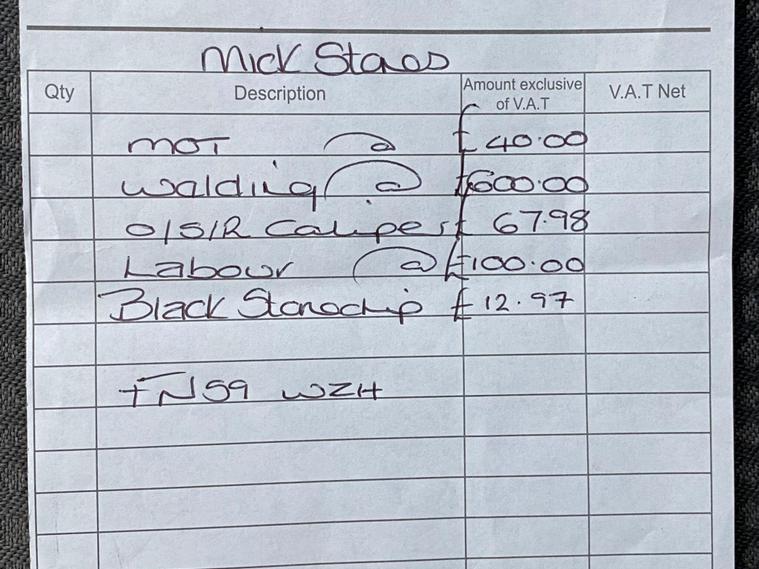 Mick Stones
Qty Description Amount exclusive of V.A.T V.A.T Net
MOT @ £40.00
Walding @ £600.00
O/S/R Caliper £ 67.98
Labour @ £100.00
Black Stonechip £12.97
FN59 WZH